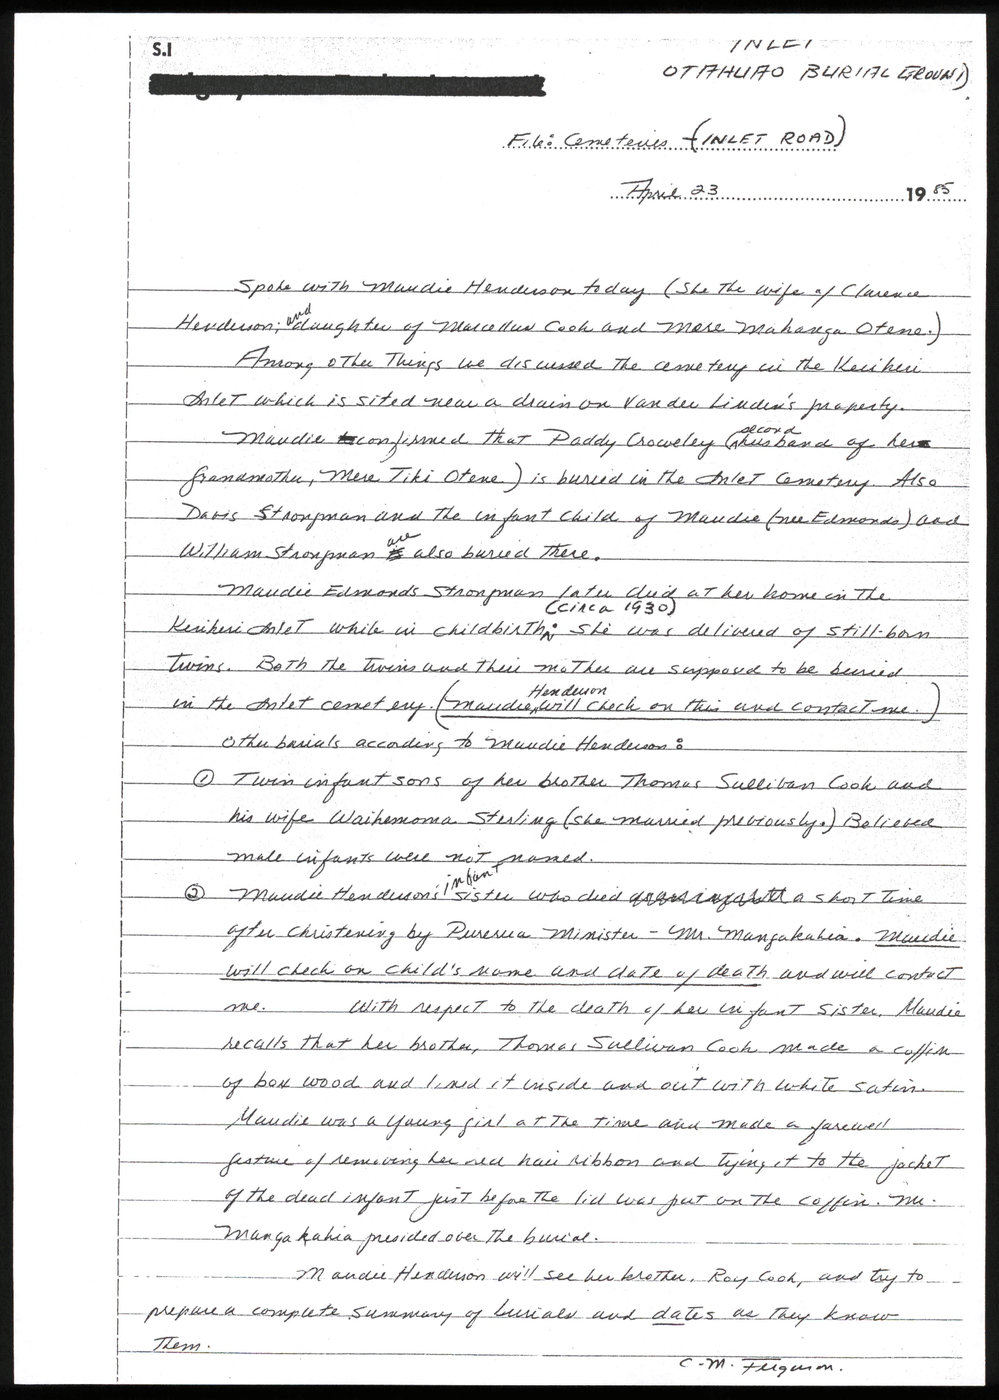 S.I
INLET
OTAHUAO BURIAL GROUND
File: Cemeteries - (INLET ROAD)
April 23 1985
Spoke with Maudie Henderson today (She the wife of Clarence
Henderson; and daughter of Marcellus Cook and Mere Mahanga Otene.)
Among other things we discussed the cemetery in the Kerikeri
Inlet which is sited near a drain on Vander Linden's property.
Maudie confirmed that Paddy Croweley (second husband of her
Grandmother, Mere Tiki Otene) is buried in the Inlet Cemetery. Also
Davis Strongman and the infant child of Maudie (nee Edmonds) and
William Strongman are also buried there.
Maudie Edmonds Strongman later died at her home in the
Kerikeri Inlet while in childbirth (circa 1930): She was delivered of still-born
twins. Both the twins and their mother are supposed to be buried
in the Inlet cemetery. (Maudie Henderson will check on this and contact me.)
Other burials according to Maudie Henderson:
① Twin infant sons of her brother Thomas Sullivan Cook and
his wife Waihemoma Sterling (she married previously.) Believed
male infants were not named.
② Maudie Henderson's infant sister who died a short time
after christening by Purerua Minister - Mr. Mangakahia. Maudie
will check on child's name and date of death and will contact
me. With respect to the death of her infant sister, Maudie
recalls that her brother, Thomas Sullivan Cook made a coffin
of box wood and lined it inside and out with white satin.
Maudie was a young girl at the time and made a farewell
gesture of removing her red hair ribbon and tying it to the jacket
of the dead infant just before the lid was put on the coffin. Mr.
Mangakahia presided over the burial.
Maudie Henderson will see her brother, Roy Cook, and try to
prepare a complete summary of burials and dates as they know
them.
C.M. Ferguson.